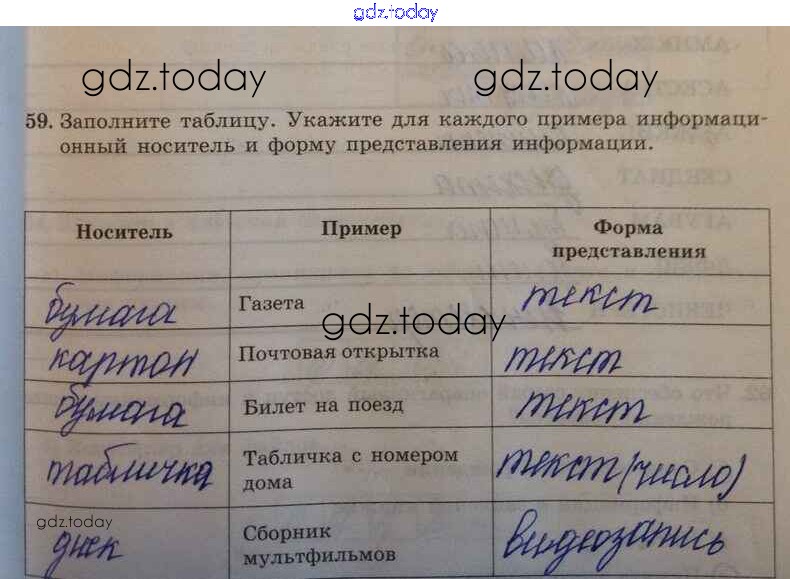 gdz.today
gdz.today gdz.today
59. Заполните таблицу. Укажите для каждого примера информаци-
онный носитель и форму представления информации.
Носитель Пример Форма
представления
бумага Газета текст
gdz.today
картон Почтовая открытка текст
бумага Билет на поезд текст
табличка Табличка с номером текст (число)
дома
gdz.today
диск Сборник видеозапись
мультфильмов